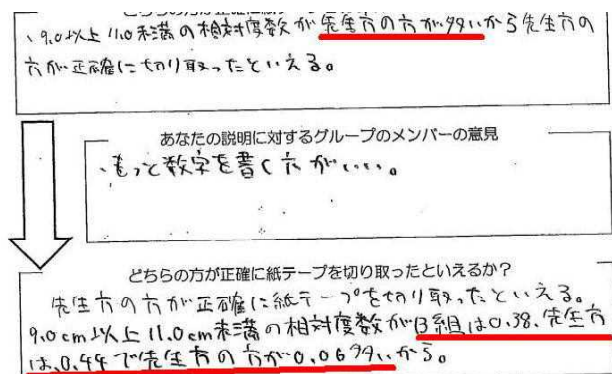 ・9.0以上11.0未満の相対度数が先生方の方が多いから先生方の
方が正確に切り取ったといえる。
あなたの説明に対するグループのメンバーの意見
・もっと数字を書く方がいい。
どちらの方が正確に紙テープを切り取ったといえるか？
先生方の方が正確に紙テープを切り取ったといえる。
9.0cm以上11.0cm未満の相対度数がB組は0.38、先生方
は、0.44で先生方の方が0.06多いから。